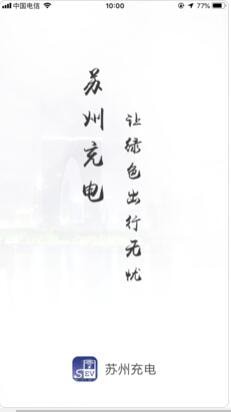 中国电信 10:00 77%
苏州充电
让绿色出行无忧
SEV
苏州充电